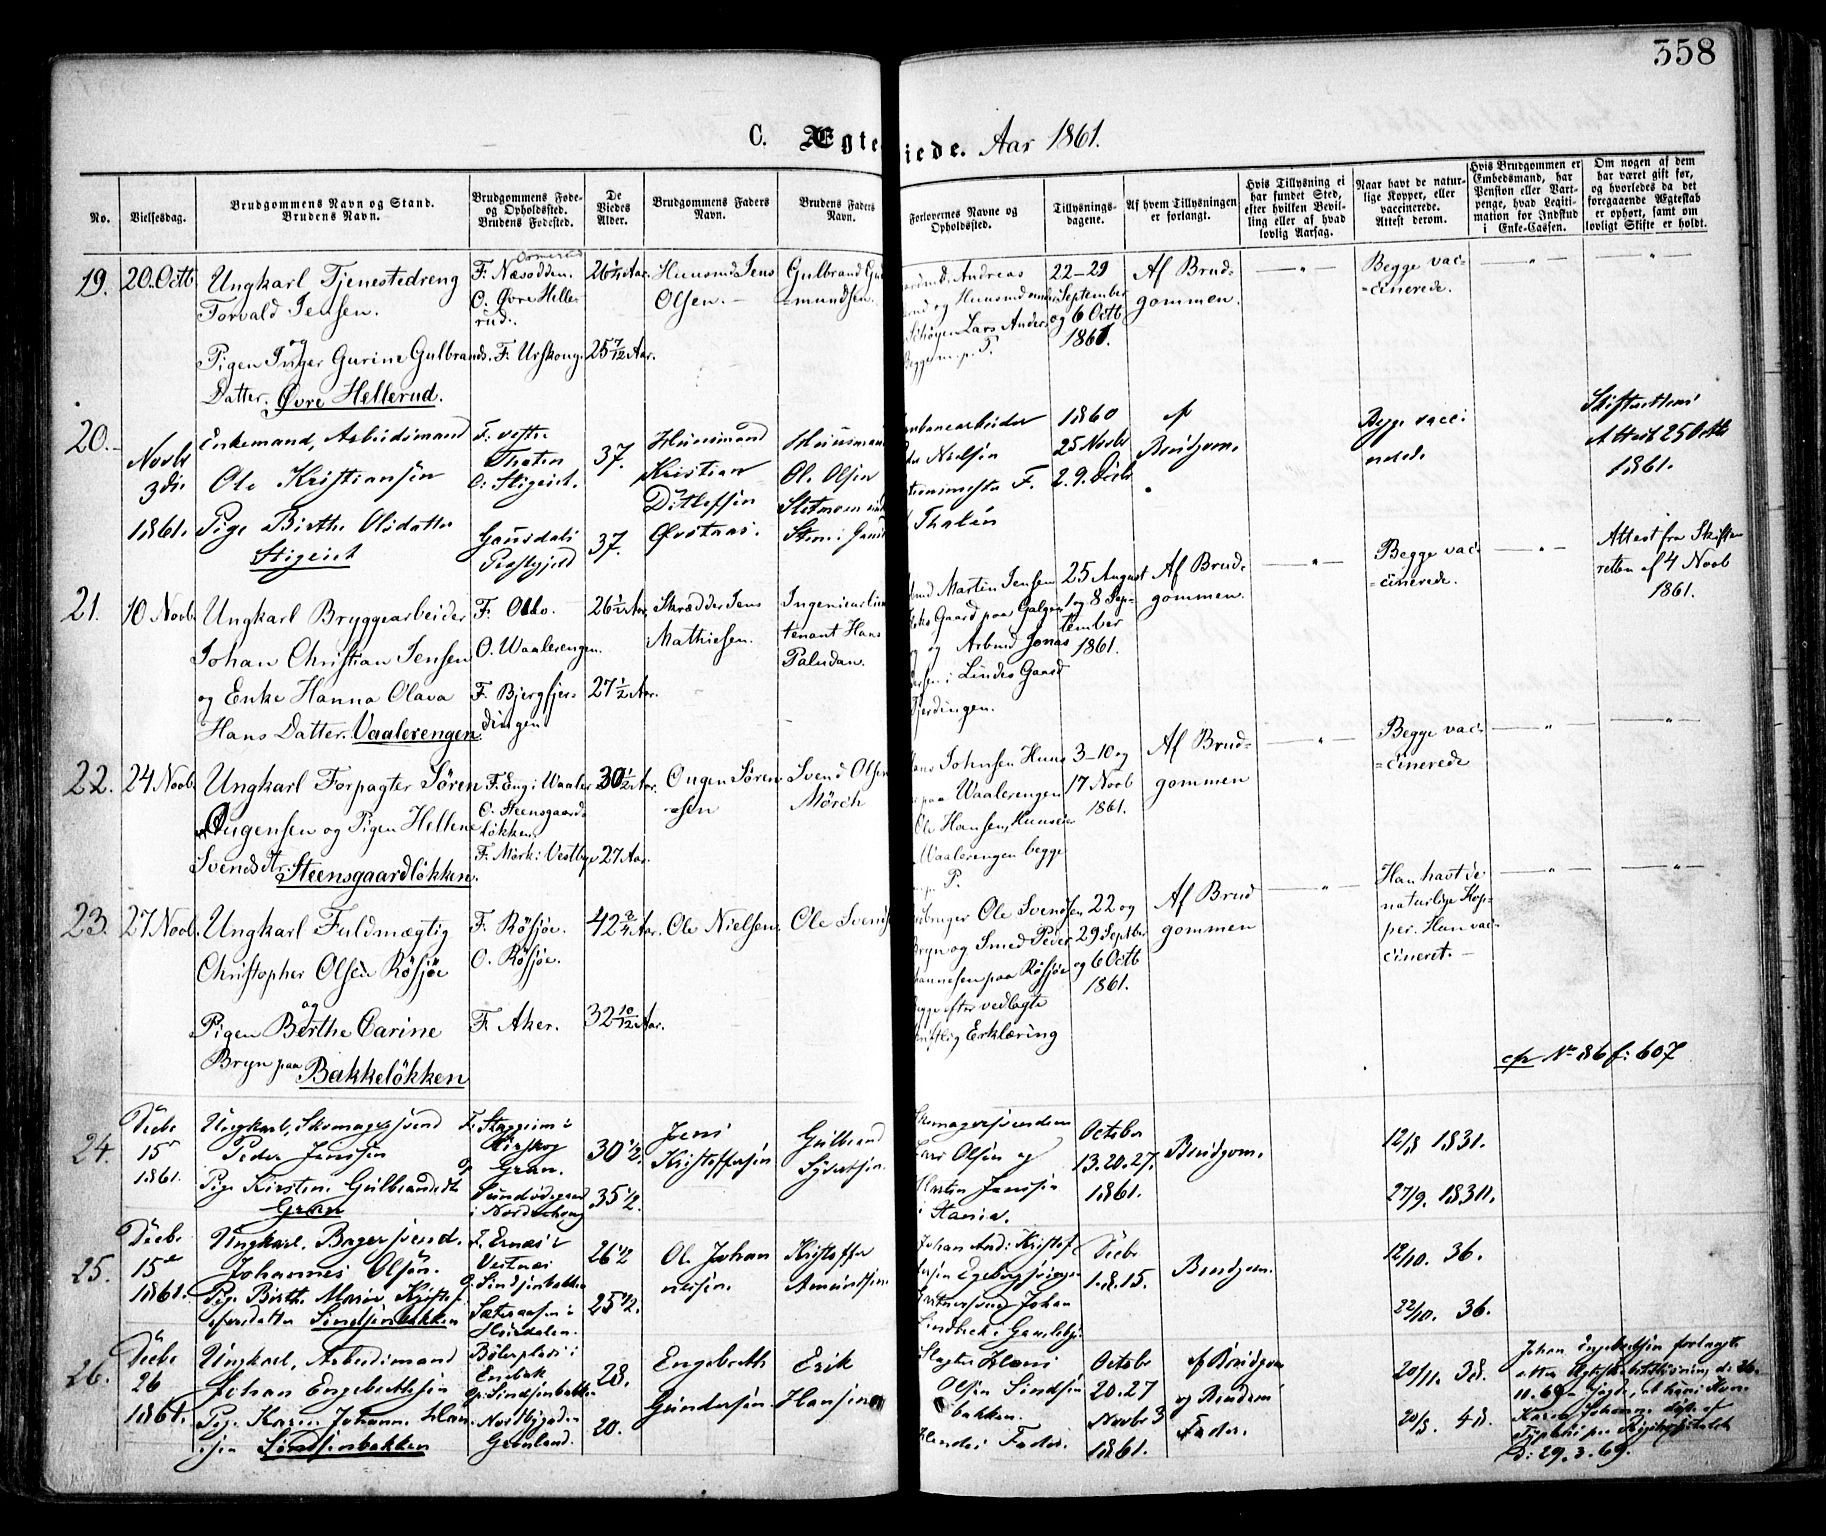 358
C. Ægteviede. Aar 1861.
No.
Vielsesdag.
Brudgommens Navn og Stand.
Brudens Navn.
Brudgommens Føde-
og Opholdssted.
Brudens Fødested.
De
Viedes
Alder.
Brudgommens Faders
Navn.
Brudens Faders
Navn.
Forlovernes Navne og
Opholdssted.
Tillysnings-
dagene.
Af hvem Tillysningen
er forlangt.
Hvis Tillysning ei
har fundet Sted,
efter hvilken Bevil-
ling eller af hvad
lovlig Aarsag.
Naar havt de natur-
lige Kopper, eller
vaccinerede.
Attest derom.
Hvis Brudgommen er
Embedsmand, har
Pension eller Vart-
penge, hvad Legiti-
mation for Indskud
i Enke-Cassen.
Om nogen af dem
har været gift før,
og hvorledes da det
foregaaende Ægteskab
er ophørt, samt om
lovligt Skifte er holdt.
19.
20. Octb
Ungkarl Tjenestedreng
Torvald Jensen.
og
Pigen Inger Gurine Gulbrands
Datter. Øvre Hellerud.
F. Næsodden.
O. Øvre Helle
rud.
F. Urskoug.
26 1/2 Aar.
25 7/12 Aar.
Huusmd Jens
Olsen. –
Gulbrand Gu
=mundsen.
Andreas
og Huusmd
Lars Anders
Begge m. p. P.
22–29
September
og 6 Octb
1861.
Af Brud=
gommen.
— " —
Begge vac=
=cinerede.
— " —
— " —
20.
Novbr
3die
1861.
Enkemand, Arbeidsmand
Ole Kristiansen
Pige Birthe Olsdatter
Stigeiet
F: vestre
Thoten
O: Stigeiet.
Gausdals
Præstgjeld
37.
37.
Huusmand
Kristian
Ditlefsen
Huusmand
Ole Olsen
Nielsen
F.
Thalen
1860
25 Novbr
2. 9. Decbr
af
Brudgom.
Begge vacci
nerede.
Skifterettens
Attest 25 Octbr
1861.
21.
10 Novb.
Ungkarl Bryggearbeider
Johan Christian Jensen
og Enke Hanna Olava
Hans Datter. Vaalerengen
F. Oslo.
O. Waalerengen.
F. Bjergfjer=
dingen
26 1/2 Aar.
27 1/2 Aar.
Skrædder Jens
Mathiesen.
Ingenieurlieu
tenant Hans
Paludan.
Martin Jensen
Gaard paa Galgen
og Arbmd Jonas
i Lindes Gaard
Fjerdingen.
25 August
1 og 8 Sep=
tember
1861.
Af Brud=
gommen.
— " —
Begge vac=
=cinerede.
— " —
Attest fra Skifte
retten af 4 Novb
1861.
22.
24 Novb.
Ungkarl Forpagter Søren
Ougensen og Pigen Hellene
Svendsdtr. Steensgaardløkken.
F. Eng i Waaler
O. Steensgaard=
løkken.
F. Mørk i Vestbye
30 1/2 Aar.
27 Aar.
Ougen Søren
=sen
Svend Olsen
Mørch
Johnsen Huus
paa Waalerengen
Ole Hansen, Huuseier
Waalerengen begge
P.
3–10 og
17 Novb
1861.
Af Brud=
gommen
— " —
Begge vac=
=cinerede
— " —
— " —
23.
27 Novb.
Ungkarl Fuldmægtig
Christopher Olsen Røsjøe
og
Pigen Berthe Carine
Bryn paa Bakkeløkken
F. Røsjøe.
O. Røsjøe.
F. Aker.
42 3/4 Aar.
32 10/12 Aar.
Ole Nielsen.
Ole Svends
Ole Svendsen
Bryn og Smed Peder
paa Røsjøe
Begge efter vedlagte
skriftlig Erklæring
22 og
29 Septbr
og 6 Octb
1861.
Af Brud
gommen
— " —
Han havt de
naturlige Kop=
per. Hun vac=
cineret. –
— " —
— " —
cfr No 86 f: 607
24.
Decbr
15
1861.
Ungkarl, Skomagersvend
Peder Jensen
Pige Kirsten Gulbrandsdtr
Grøn
30 1/2.
35 1/2.
Jens
Kristoffersen
Gulbrand
Syversen.
Skomagersvendene
Lars Olsen og
Martin Jensen
October
13. 20. 27.
1861.
Brudgom.
12/8 1831.
27/9. 1830.
25.
Decbr
15
1861.
Ungkarl, Bagersvend.
Johannes Olsen.
Pige Birthe Marie Kristof
fersdatter Sindsenbakken
Sindsenbakken
Hurdalen.
26 1/2
25 1/2.
Ole Johan
nesen.
Kristoffer
Amundsen
Johan And: Kristof
Johan
Lindbeck i Gamlebyen
Decbr
1. 8. 15.
Brudgom.
12/10. 36.
22/10. 36.
26.
Decbr
26
1861.
Ungkarl, Arbeidsmand
Johan Engebrethsen
Pige Karen Johanne Han
sen Sindsenbakken
Enebak
O: Sindsenbakken
Nordbygaden
Grønland.
28.
20.
Engebreth
Gundersen.
Erik
Hansen
Hans
Olsen Sindsen
bakken.
Fader.
October
20. 27
Novbr 3
1861.
af Brudgom
og Brudens
Fader.
20/11. 38.
20/8. 48.
Johan Engebretsen forlagte
11. 69
Karen Johanne døde af
D: 29. 3. 69.